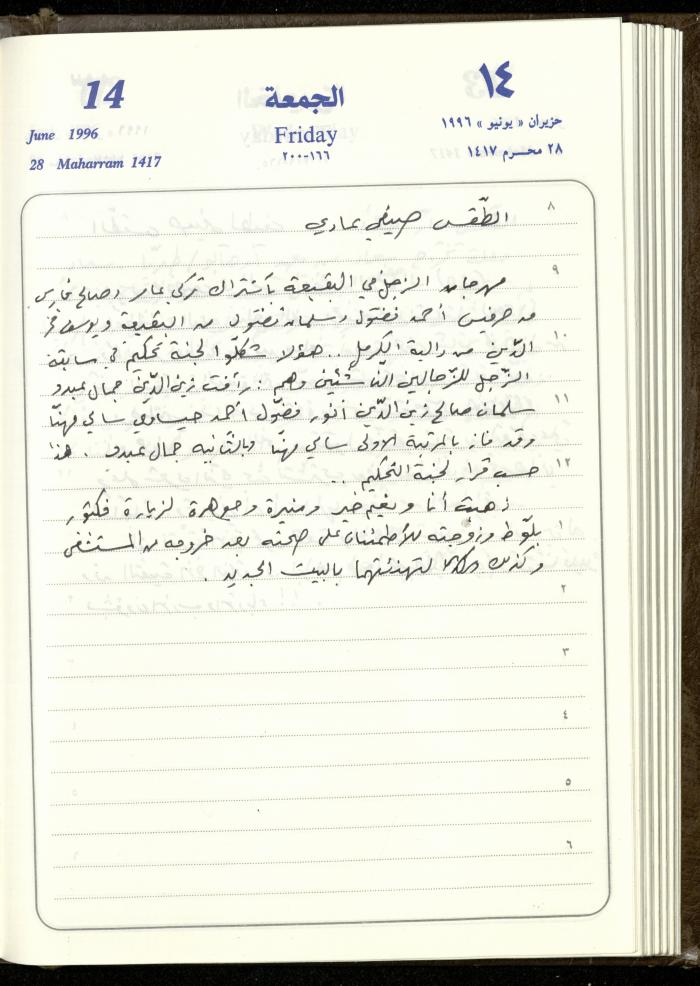 14
الجمعة
١٤
June 1996
Friday
حزيران « يونيو » ١٩٩٦
28 Maharram 1417
١٦٦-٢٠٠
٢٨ محرم ١٤١٧
٨
الطّقس صيفي عادي
٩
مهرجان الزجل في البقيعة بأشتراك تركي عامر وصالح فارس
من حرفيش أحمد فضّول وسلمان فضّول من البقيعة ويوسف فخر
١٠
الدّين من دالية الكرمل .. هؤلا شكلّوا لجنة تحكيم في سابقة
الزّجل للزّجالين النّاشئين وهم : رأفت زين الدّين جمال عبدو
١١
سلمان صالح زين الدّين أنور فضّول أحمد حيساوي سامي مهنّا
وقد فاز بالمرتبة الاولى سامي مهنّا وبالثّانيه جمال عبدو . هذا
١٢
حسب قرار لجنة التحكيم ..
ذهبت أنا ونعيم خير ومنيرة وجوهرة لزيارة فكتور
١
بلّوط وزوجته للأطمئنان على صحته بعد خروجه من المستشفى
وكذلك لتهنئتهما بالبيت الجديد .
٢
٣
٤
٥
٦